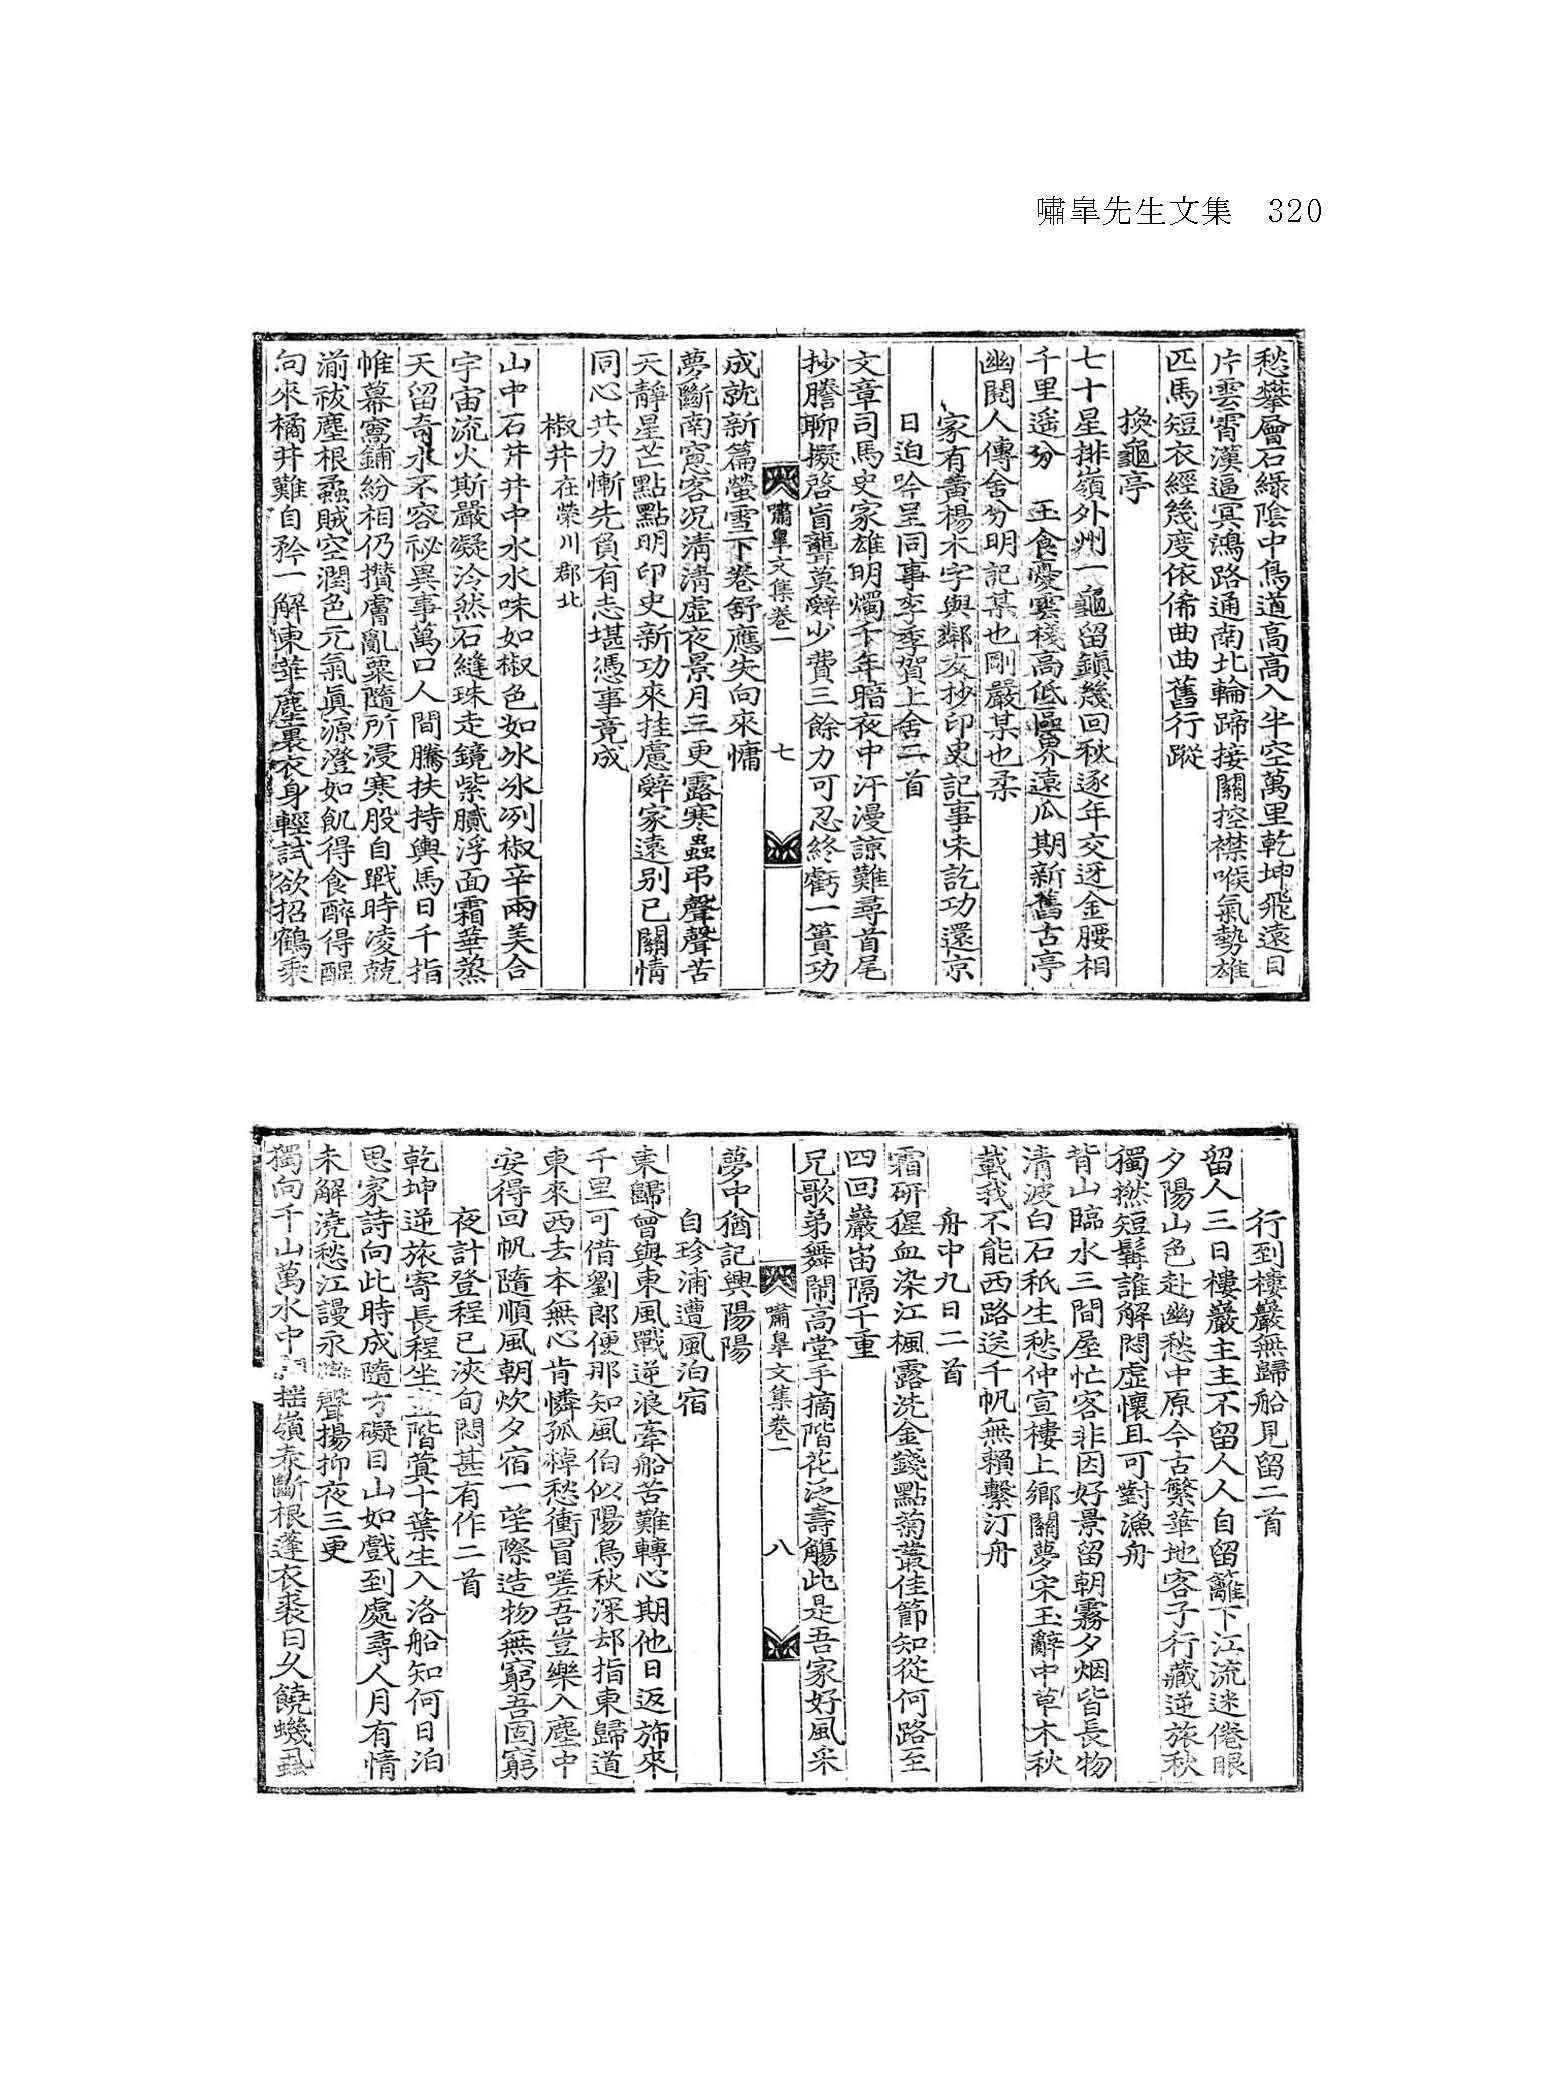 嘯皐先生文集 320
愁攀層石綠陰中鳥道高高入半空萬里乾坤飛遠目
片雲霄漢逼冥鴻路通南北輪蹄接關控襟喉氣勢雄
匹馬短衣經幾度依俙曲曲舊行蹤
換龜亭
七十星排嶺外州一龜留鎭幾回秋逐年交迓金腰相
千里遥分玉食憂雲棧高低區界遠瓜期新舊古亭
幽閱人傳舍分明記某也剛嚴某也柔
家有黃楊木字與鄰友抄印史記事未訖功還京
日迫吟呈同事李季賀上舍二首
文章司馬史家雄明燭千年暗夜中汗漫諒難尋首尾
抄謄聊擬啓盲聾莫辭少費三餘力可忍終虧一簣功
嘯皐文集卷一 七
成就新篇螢雪下卷舒應失向來慵
夢斷南窓客况淸淸虛夜景月三更露寒蟲弔聲聲苦
天靜星芒點點明印史新功來挂慮辭家遠别已關情
同心共力慚先負有志堪憑事竟成
椒井 在榮川郡北
山中石井井中水水味如椒色如氷氷冽椒辛兩美合
宇宙流火斯嚴凝泠然石縫珠走鏡紫膩浮面霜華蒸
天留奇水不容祕異事萬口人間騰扶持輿馬日千指
帷幕窩鋪紛相仍攢膚亂粟隨所浸寒股自戰時凌兢
湔祓塵根蟊賊空潤色元氣眞源澄如飢得食醉得醒
向來橘井難自矜一解東華塵裏衣身輕試欲招鶴乘
行到樓巖無歸船見留二首
留人三日樓巖主主不留人人自留籬下江流迷倦眼
夕陽山色赴幽愁中原今古繁華地客子行藏逆旅秋
獨撚短髯誰解悶虛懷且可對漁舟
背山臨水三間屋忙客非因好景留朝霧夕烟皆長物
清波白石秖生愁仲宣樓上鄉關夢宋玉辭中草木秋
載我不能西路送千帆無賴繫汀舟
舟中九日二首
霜硏猩血染江楓露洗金錢點菊叢佳節知從何路至
四回巖岫隔千重
兄歌弟舞鬧高堂手摘階花泛壽觴此是吾家好風采
嘯皐文集卷一 八
夢中猶記興陽陽
自珍浦遭風泊宿
東歸曾與東風戰逆浪牽船苦難轉心期他日返旆來
千里可借劉郞便那知風伯似陽鳥秋深却指東歸道
東來西去本無心肯憐孤棹愁衝冒嗟吾豈樂入塵中
安得回帆隨順風朝炊夕宿一望際造物無窮吾固窮
夜計登程已浹旬悶甚有作二首
乾坤逆旅寄長程坐階蓂十葉生入洛船知何日泊
思家詩向此時成隨方礙目山如戲到處尋人月有情
未解澆愁江謾永聲揚抑夜三更
獨向千山萬水中搖嶺表斷根蓬衣裘日久饒蟣虱